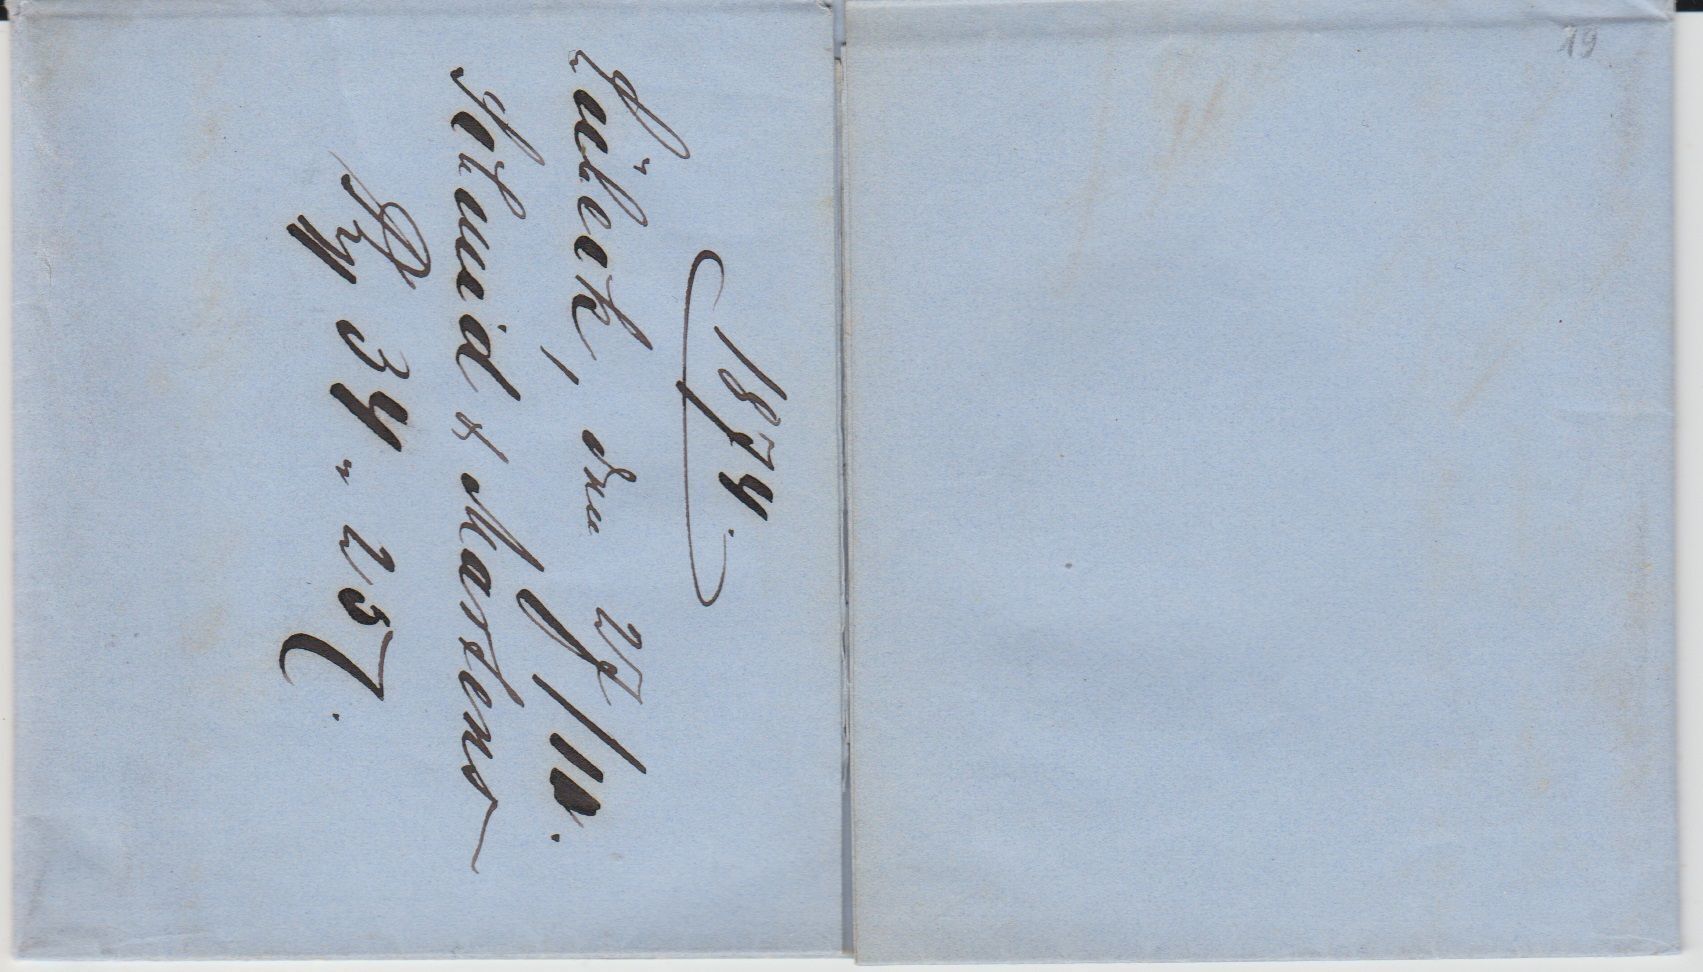 1874.
Lübeck, den 27/10.
Schmid & Marstens
34 " 25
19